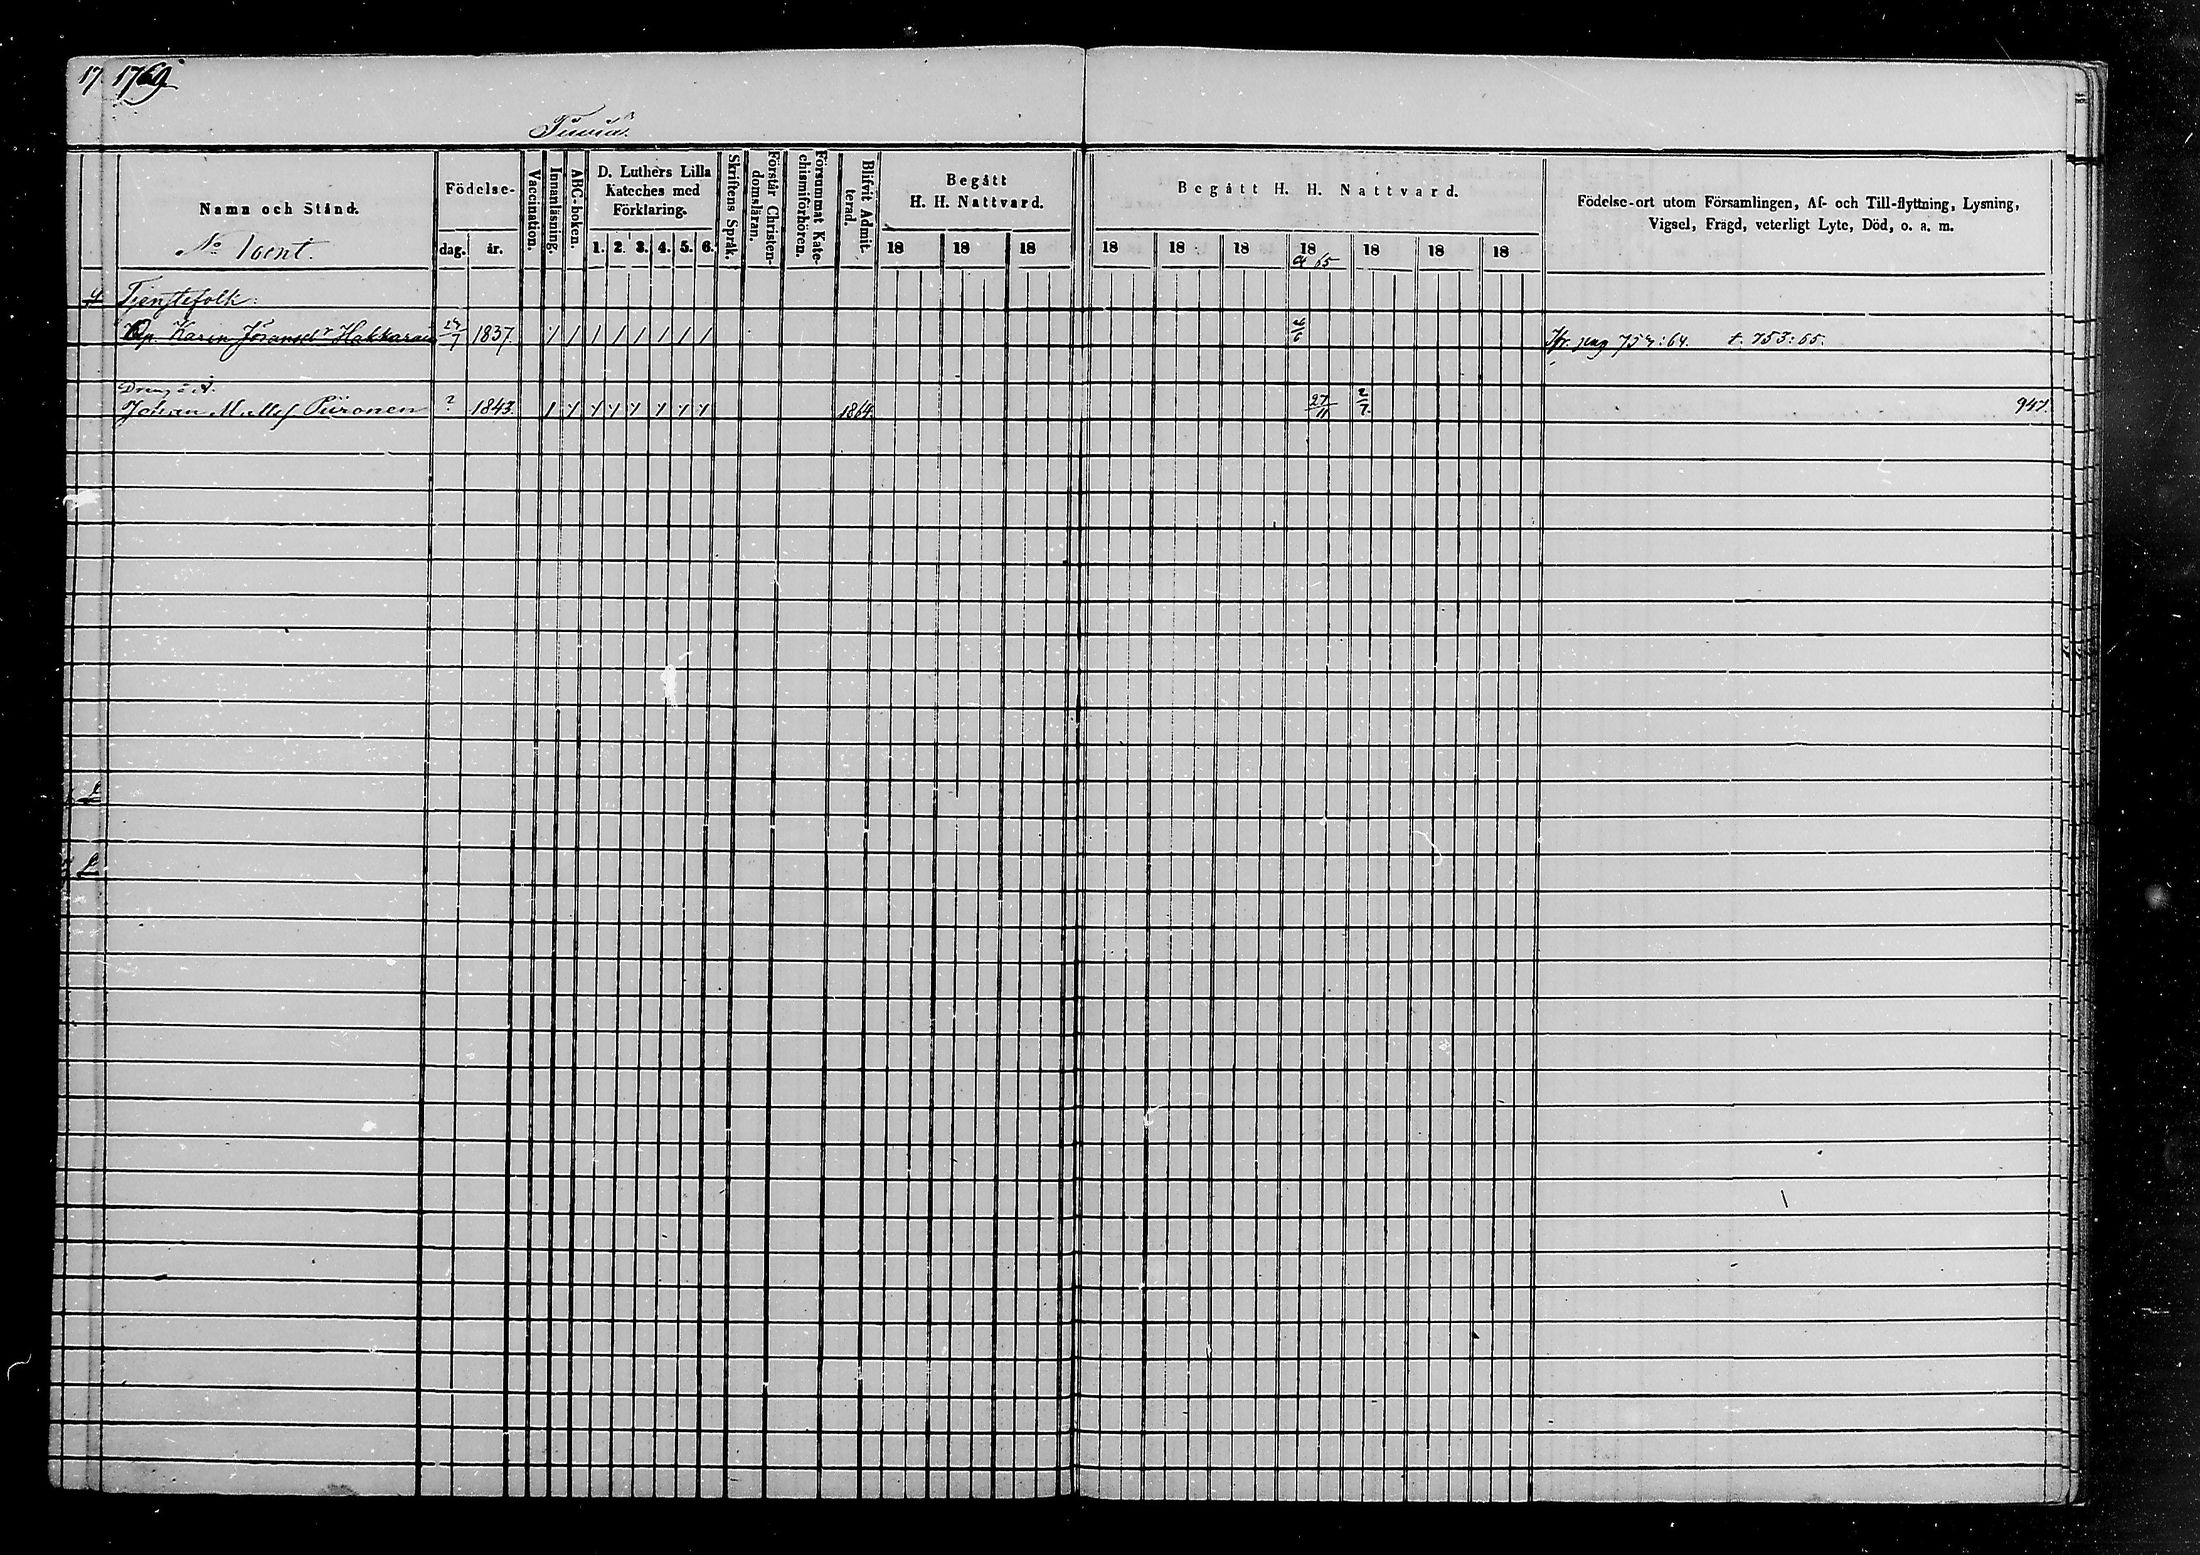 17 1769
Namn och Stånd.
No
Födelse-
dag. år.
Vaccination.
Innanläsning.
ABC-boken.
D. Luthers Lilla
Kateches med
Förklaring.
1. 2. 3. 4. 5. 6.
Skriftens Språk.
Förstår Christen-
domsläran.
Försummat Kate-
chismiförhören.
Blifvit Admit-
terad.
Begått
H. H. Nattvard.
18 18 18
Begått H. H. Nattvard.
18 18 18 18 18 18 18
65
Födelse-ort utom Församlingen, Af- och Till-flyttning, Lysning,
Vigsel, Frägd, veterligt Lyte, Död, o. a. m.
Tjenstefolk:
Karin Jöransdr Hakkarain 1837. / / / / / / / / Ifr. pag :64. t. 753:65.
Dreng
Johan Piironen ? 1843. 1864. 27/11 2/7 947.